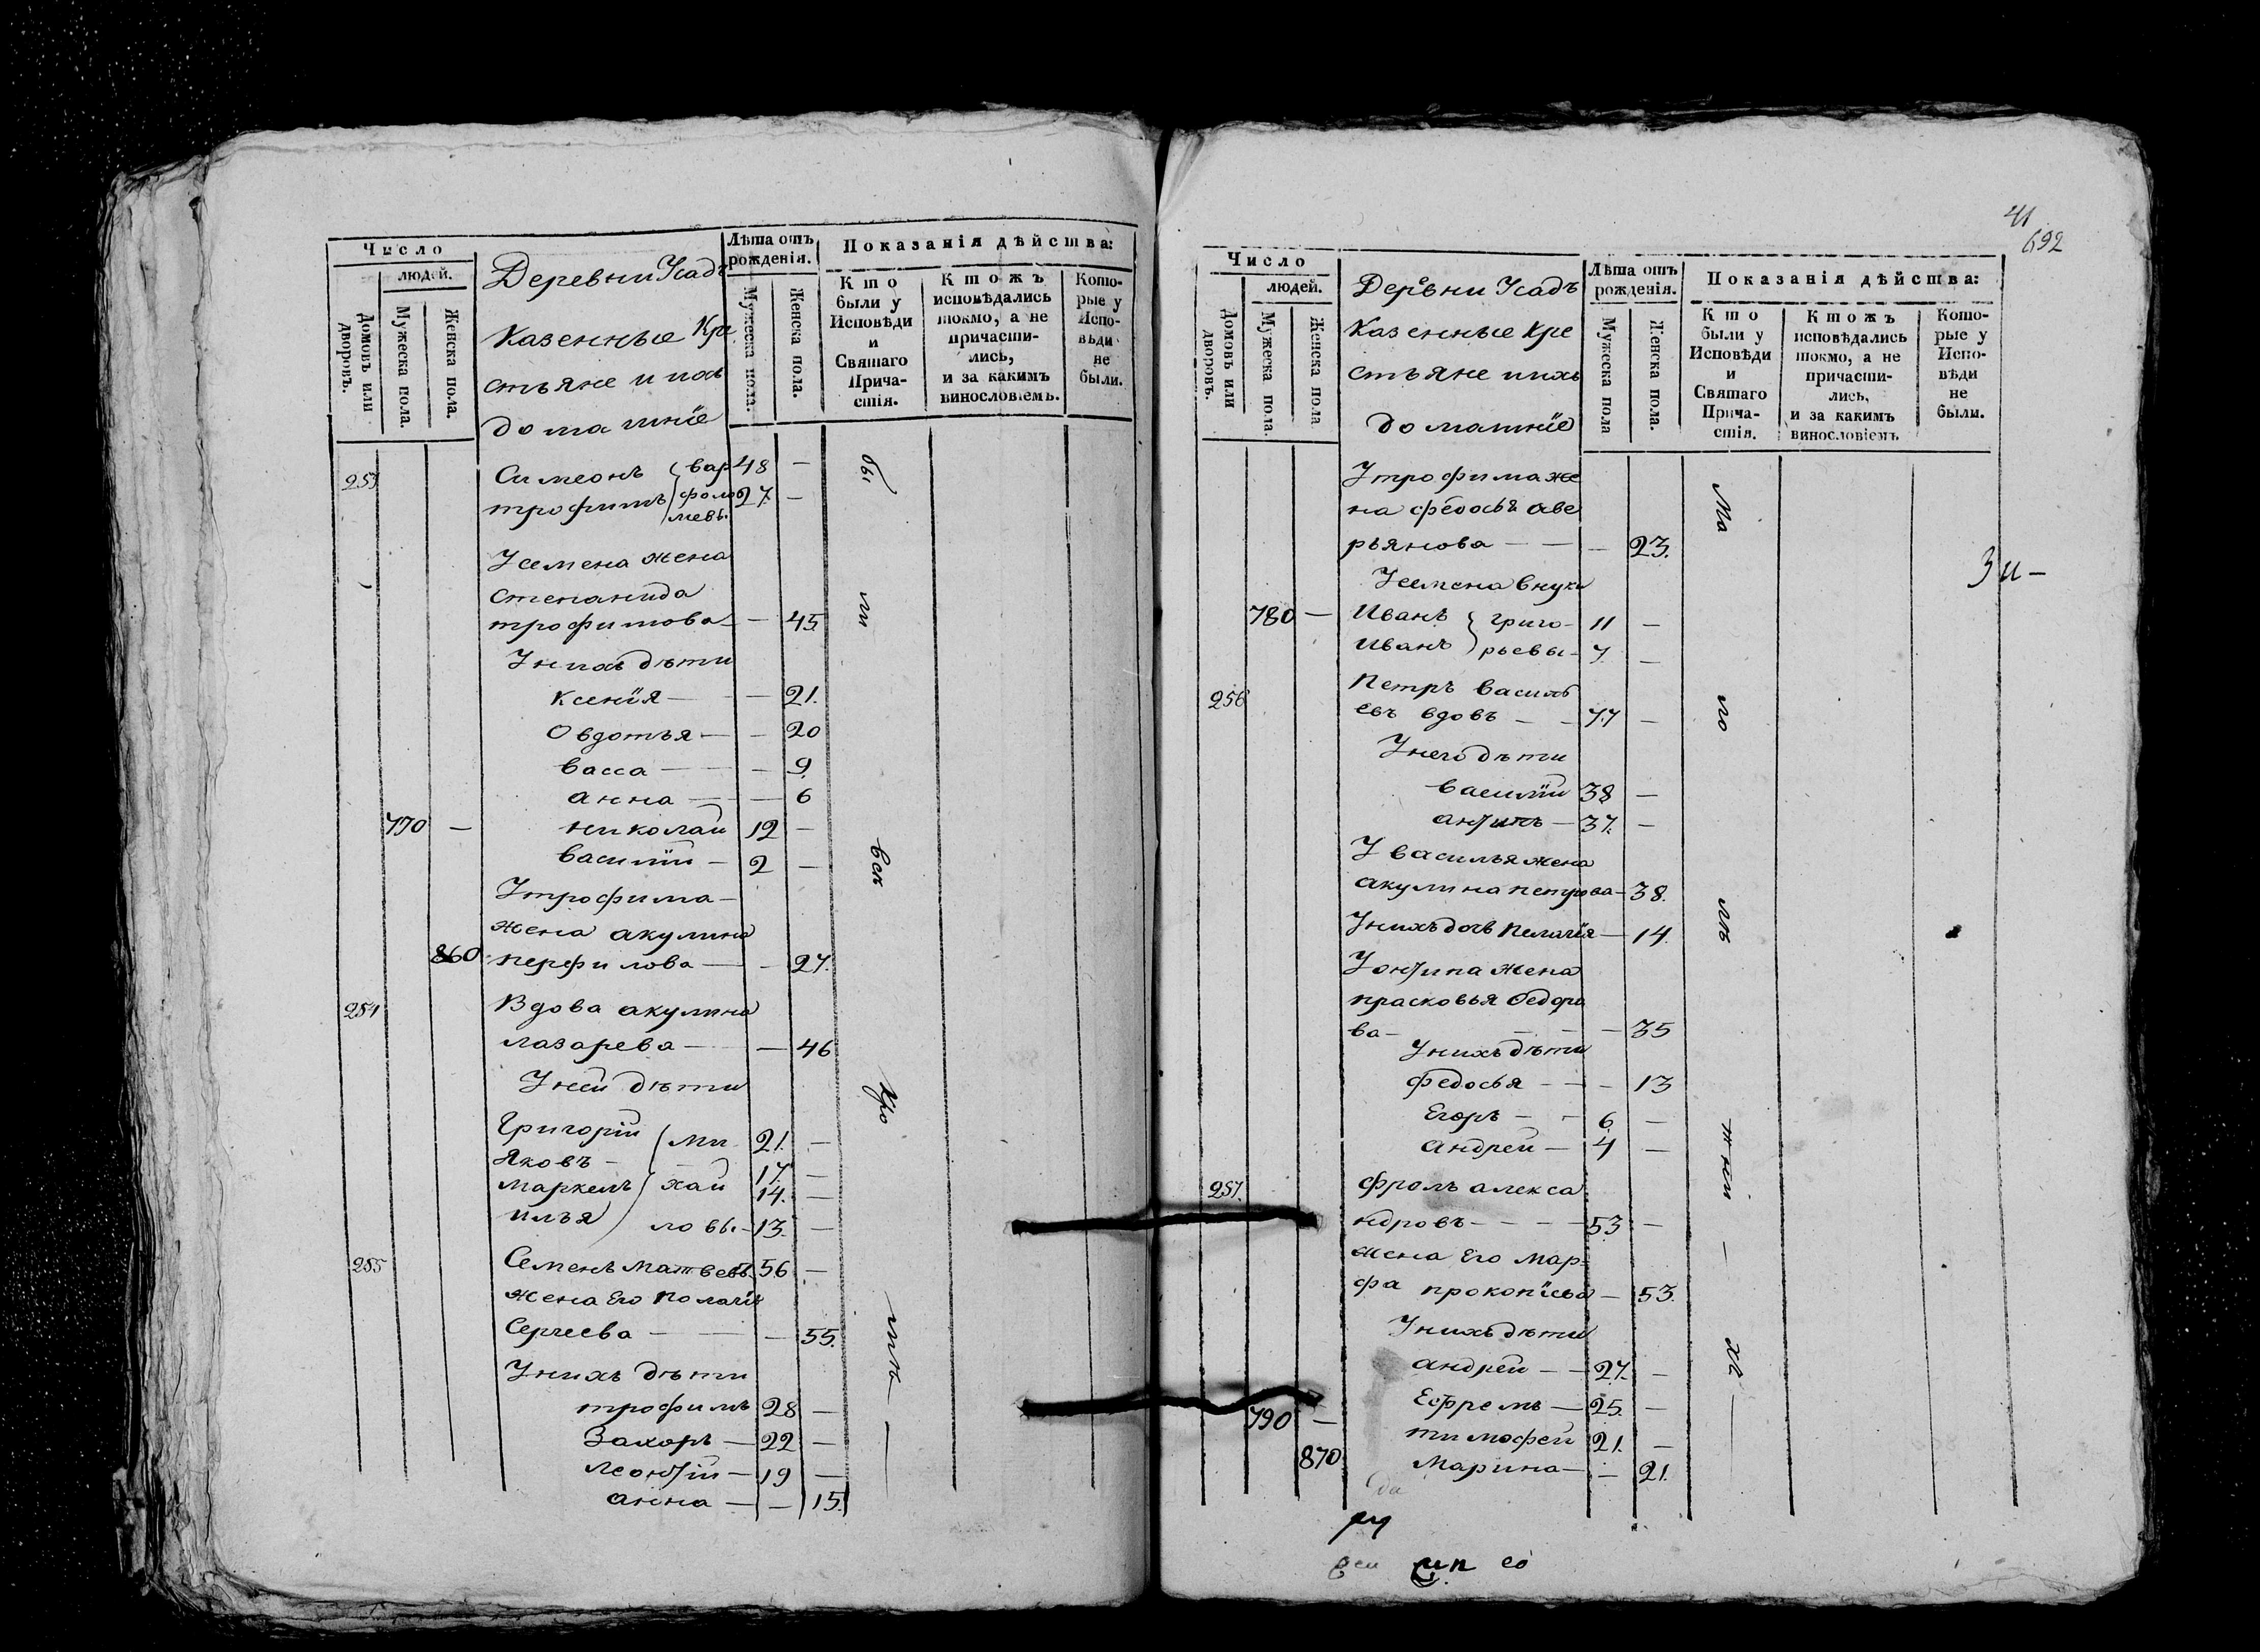 Число
людей.
Домовъ или дворовъ.
Мужеска пола.
Женска пола.
Деревни Усадъ
казенные кре
стьяне и ихъ
домашнїе
Лѣта отъ рожденія.
Мужеска пола.
Женска пола.
Показанія дѣйства:
Кто были у Исповѣди и Святаго Причастія.
Ктожъ исповѣдались токмо, а не причастились, и за какимъ винословіемъ.
Которые у Исповѣди не были.
253 Симеонъ вар 48 —
трофимъ фоло 27. —
мевы
Усемена жена
степанида
трофимова — — 45.
Унихъ дѣти
ксенїя — — 21.
Овдотья — — 20
васса — — 9.
анна — — 6
770 — николай 12 —
василїй — 2 —
Утрофима —
жена акулина
860 перфилова — — 27.
254 Вдова акулина
лазарева — — 46
Уней дѣти
Григорїй ми 21. —
Яковъ — 17. —
маркелъ хай 14. —
илья ловы — 13. —
255 Семенъ матвеевъ 56 —
жена его полагїя
Сергеева — — 55.
Унихъ дѣти
трофимъ 28 —
Захоръ — 22 —
леонтїй — 19 —
анна — — 15.
бы
ли
всѣ
41
692
Число
людей.
Домовъ или дворовъ.
Мужеска пола.
Женска пола
Деревни Усадъ
казенные кре
стьяне ихъ
домашнїе
Лѣта отъ рожденія.
Мужеска пола
Женска пола.
Показанія дѣйства:
Кто были у Исповѣди и Святаго Причастія.
Ктожъ исповѣдались токмо, а не причастились, и за какимъ винословіемъ
Которые у Исповѣди не были.
Утрофима же
на федосья аве
рьянова — — — 23.
Усемена внуки
780 — Иванъ григо — 11 —
Иванъ рьевы — 7. —
256 Петръ василь
евъ вдовъ — — 77 —
Унего дѣти
василїй 38 —
антипъ — 37. —
Увасилья жена
акулина петрова — 38.
Унихъ дочь пелагїя — 14.
Уонтипа жена
прасковья федоро
ва — — — — 35
Унихъ дѣти
федосья — — — 13
Егоръ — — 6 —
андрей — 4 —
257. фролъ алекса
ндровъ — — — 53 —
жена его мар
фа прокопїева — 53.
Унихъ дѣти
андрей — — 27. —
Ефремъ — 25. —
790 — тимофей 21. —
870 марина — — 21.
Ма
ло
лѣ
тнеі —
хъ —